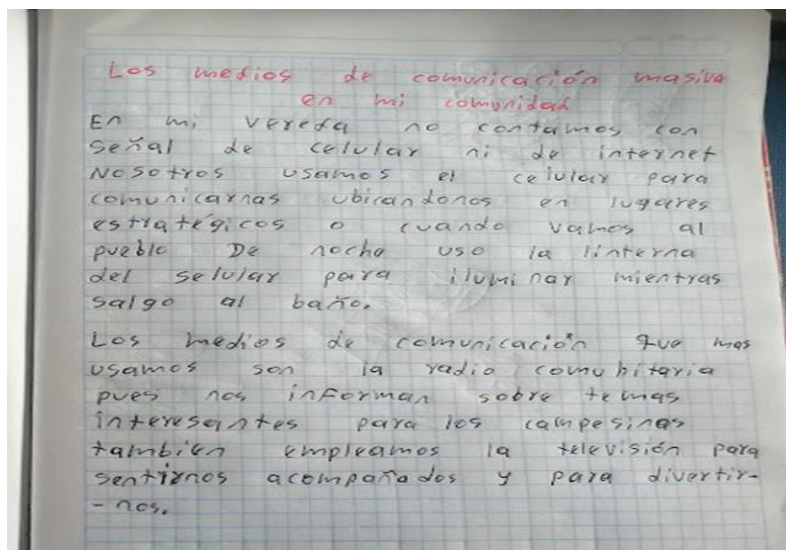 Los medios de comunicación masiva
en mi comunidad
En mi vereda no contamos con
señal de celular ni de internet
Nosotros usamos el celular para
comunicarnas ubicandonos en lugares
estratégicos o cuando vamos al
pueblo De noche uso la linterna
del selular para iluminar mientras
salgo al baño.
Los medios de comunicación que mas
usamos son la radio comunitaria
pues nos informan sobre temas
interesantes para los campesinas
también empleamos la televisión para
sentirnos acompañados y para divertir-
-nos.